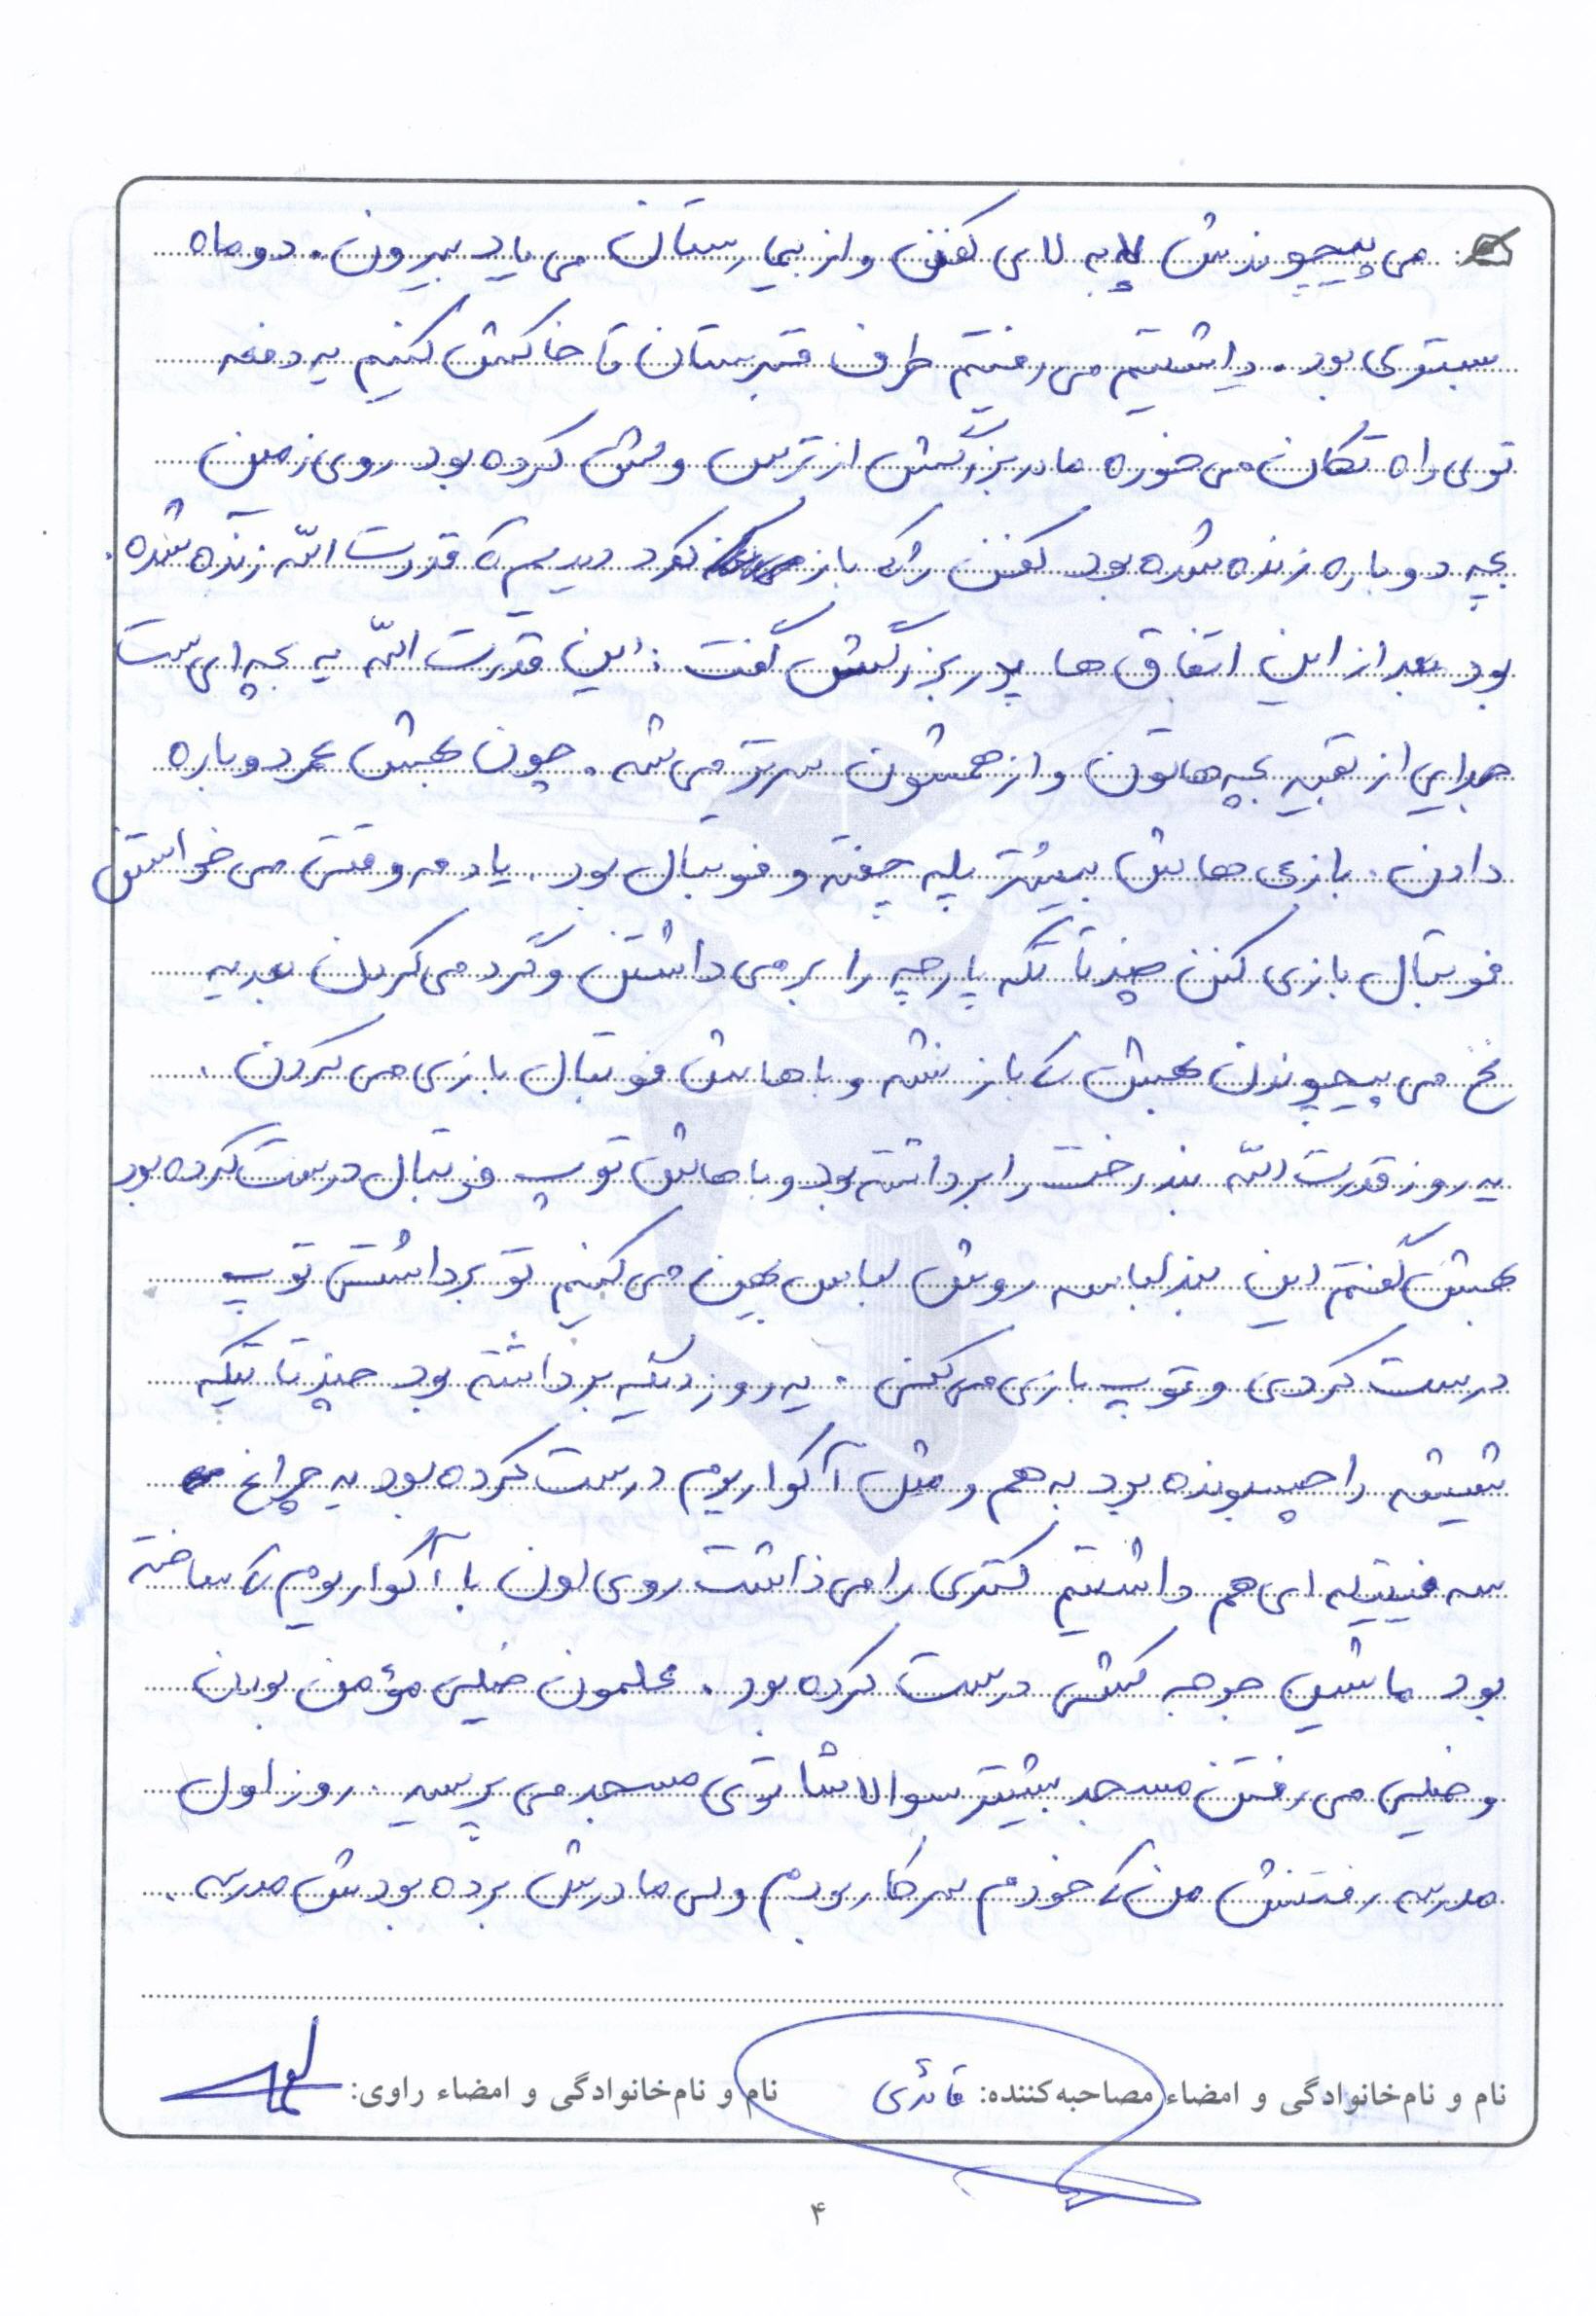 می پیچوندش لا به لای کفن و از بیمارستان می یاد بیرون. دو ماه
بستری بود. داشتیم می رفتیم طرف قبرستان تا خاکش کنیم یه دفعه
توی راه تکان می خوره مادربزرگش از ترس ولش کرده بود روی زمین
بچه دوباره زنده شده بود کفن را که باز کرد دیدیم که قدرت الله زنده شده
بود بعد از این اتفاق ها پدربزرگش گفت: این قدرت الله یه بچه ای ست
جدای از بقیه بچه هاتون و از همشون سرتر می شه. چون بهش عمر دوباره
دادن. بازی هاش بیشتر پله چفته و فوتبال بود. یادمه وقتی می خواستن
فوتبال بازی کنن چند تا تکه پارچه را بر می داشتن و گرد می کردن بعد یه
نخ می پیچوندن بهش که باز نشه و باهاش فوتبال بازی می کردن.
یه روز قدرت الله بند رخت را برداشته بود و باهاش توپ فوتبال درست کرده بود
بهش گفتم این بند لباسه روش لباس پهن می کنیم تو برداشتی توپ
درست کردی و توپ بازی می کنی. یه روز دیگه برداشته بود چند تا تیکه
شیشه را چسبونده بود به هم و مثل آکواریوم درست کرده بود یه چراغ
سه فیتیله ای هم داشتیم کتری را می ذاشت روی اون با آکواریوم که ساخته
بود ماشین جوجه کشی درست کرده بود. معلمون خیلی مؤمن بودن
و خیلی می رفتن مسجد بیشتر سوالاشا توی مسجد می پرسید. روز اول
مدرسه رفتنش من که خودم سر کار بودم ولی مادرش برده بودش مدرسه.
نام و نام‌خانوادگی و امضاء مصاحبه‌کننده: قائدی نام و نام‌خانوادگی و امضاء راوی:
۴